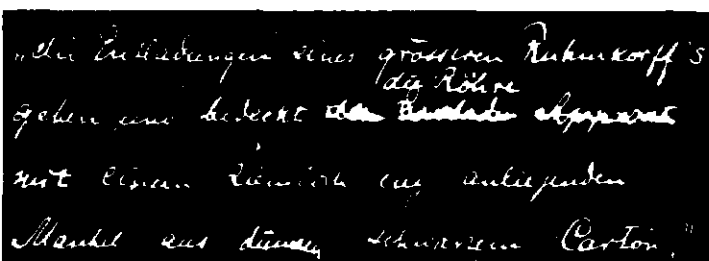 „die Entladungen eines grösseren Ruhmkorff's
die Röhre
gehen und bedeckt den Apparat
mit einem ziemlich eng anliegenden
Mantel aus dünnem, schwarzem Carton."